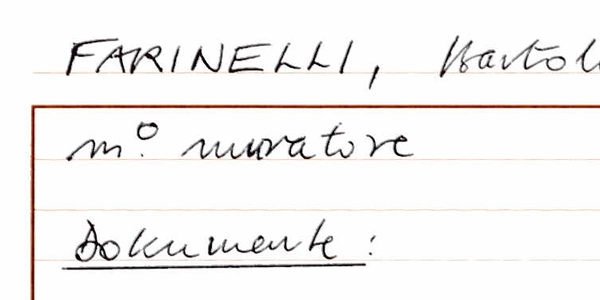 FARINELLI, Bartol
m.º muratore
Dokumente: